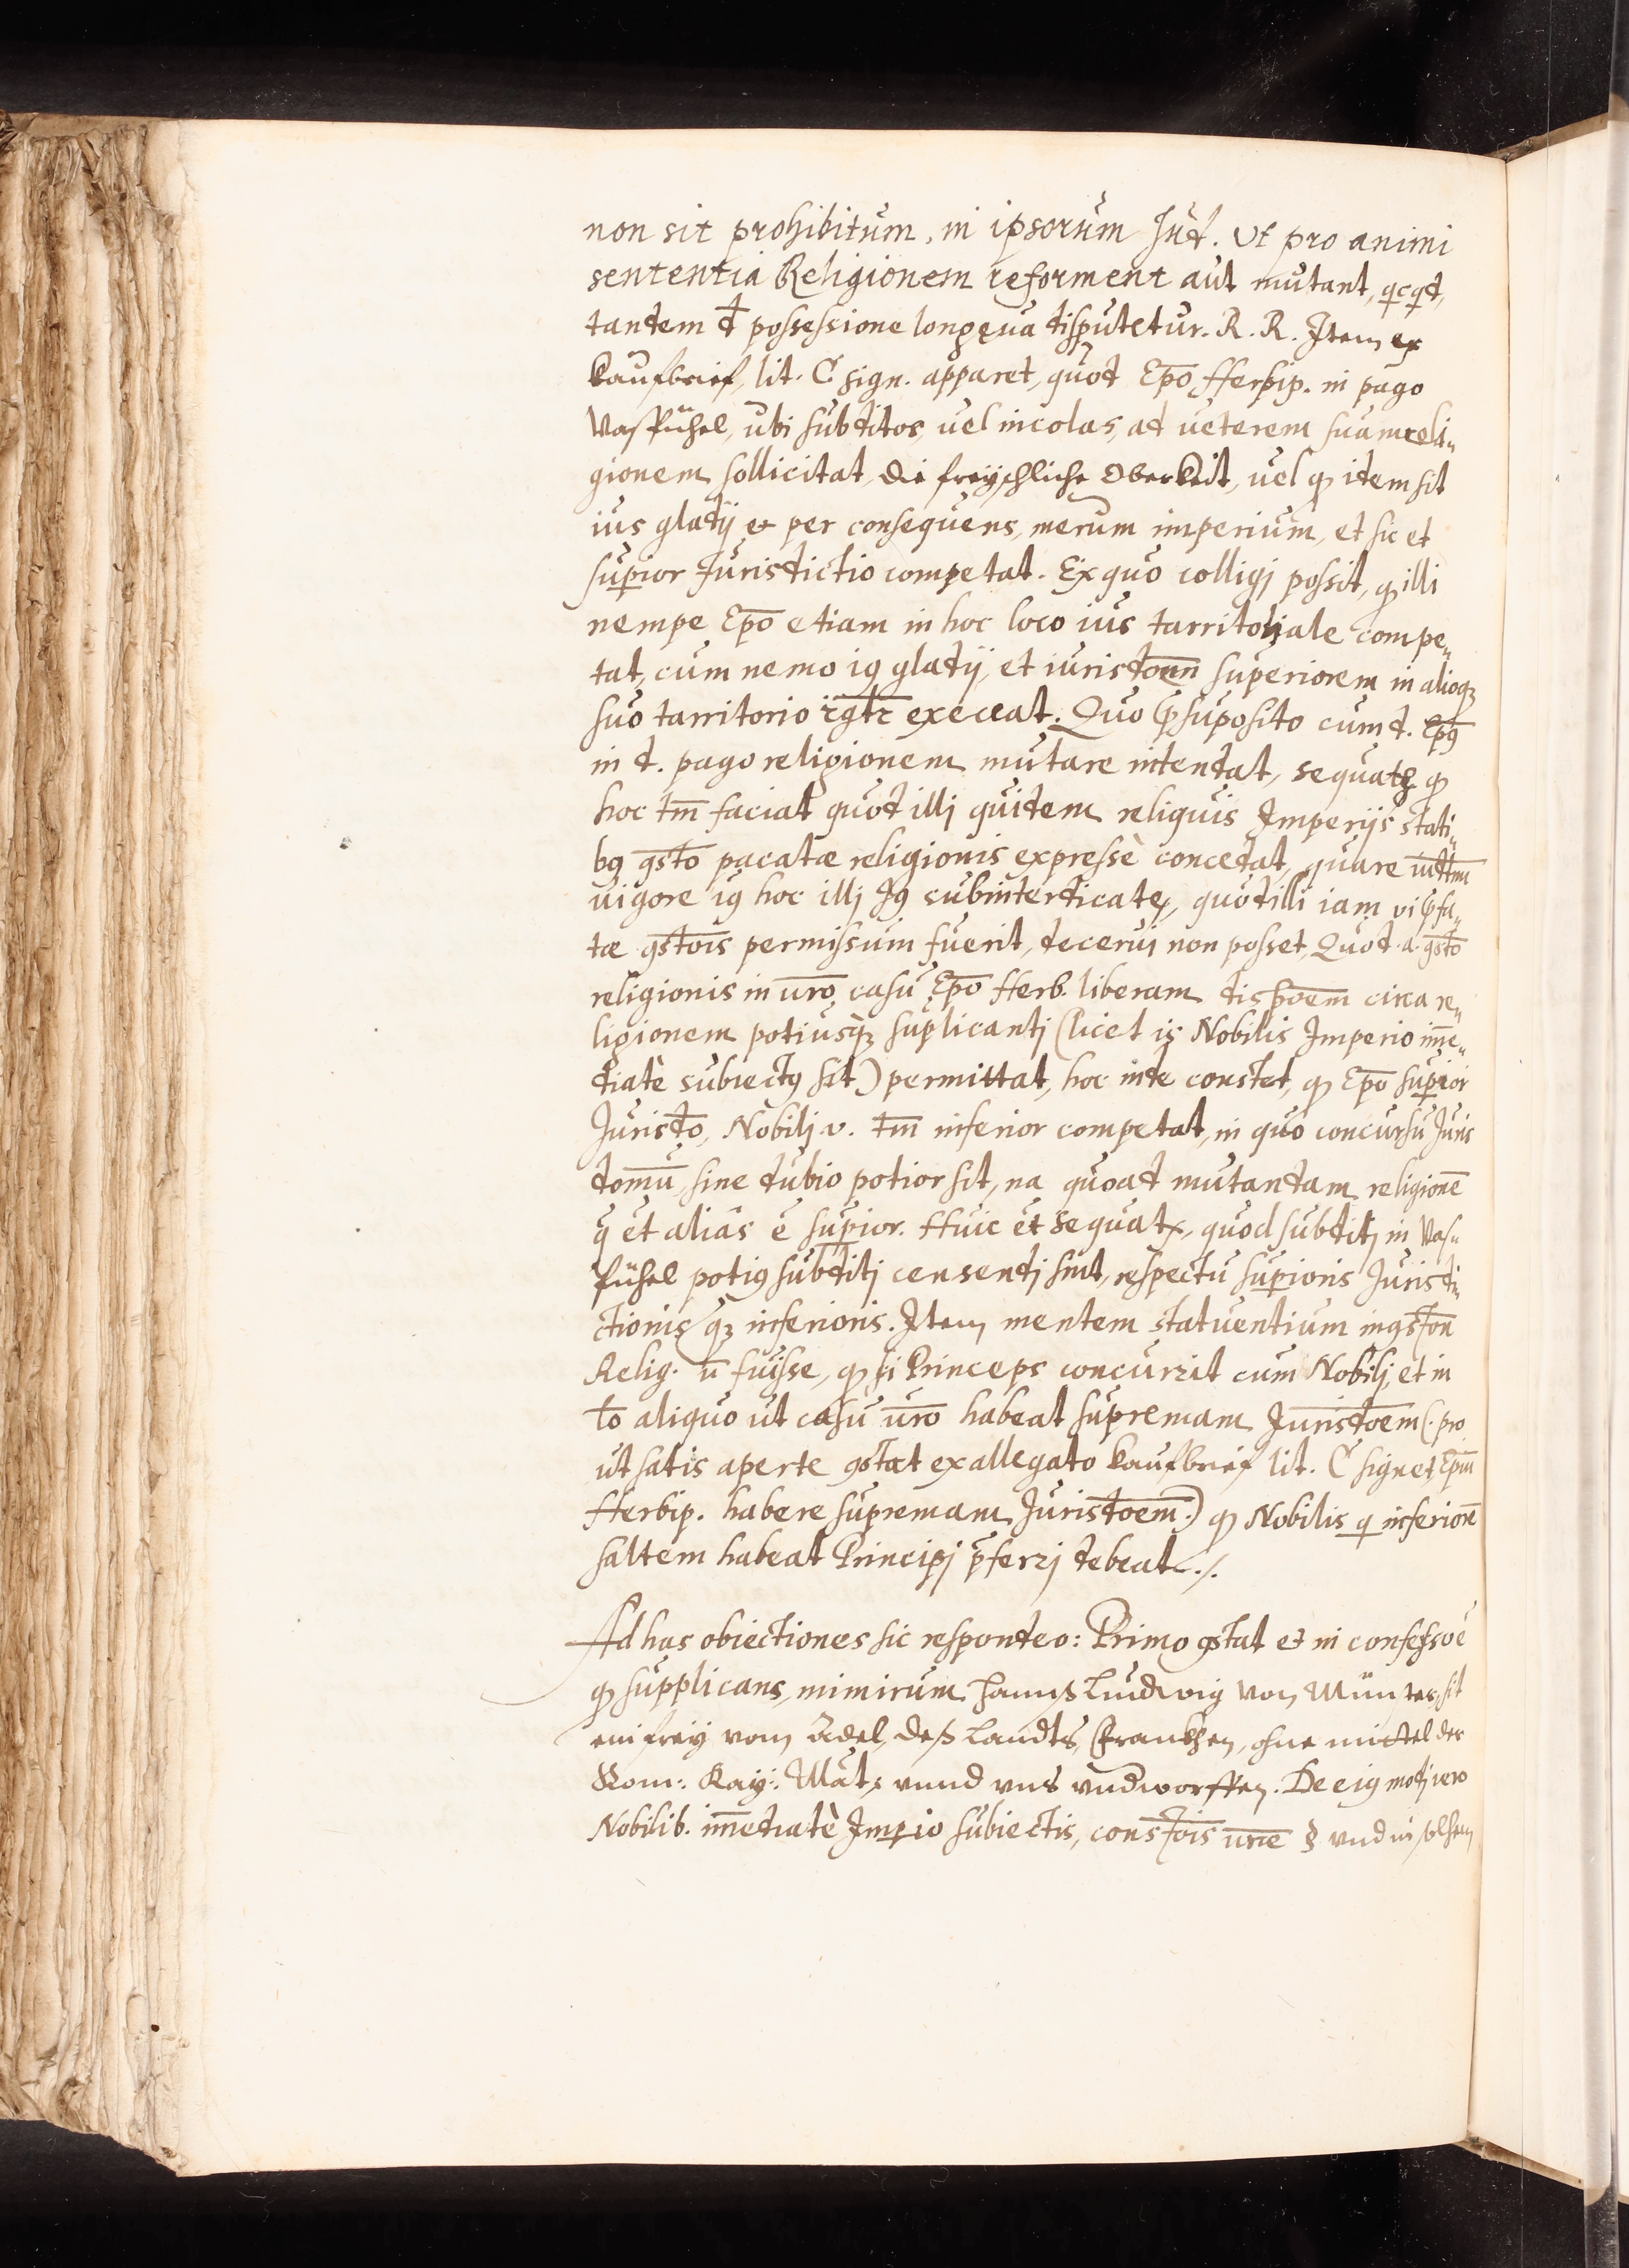 non sit prohibitum, in ipsorum Jud. Ut pro animi
sententia Religionem reforment aut mutant, qcqd,
tandem d possessione longęua disputetur. R. R. Item ex
kaufbrief, lit. C sign. apparet, quod Epō Herbip. in pago
Vasbühel, ubi subditos, vel incolas, ad ueterem suam reli„
gionem sollicitat, die freyschliche Oberkeit, uel qꝫ idem sit
ius gladij et per consequens, merum imperium, et sic et
suꝑior Jurisdictio competat. Ex quo colligj possit, qꝫ illi
nempe Epō etiam in hoc loco ius tarritoriale compe„
tat, cum nemo iꝰ gladij, et iurisdōnn superiorem in alioqꝫ
suo tarritorio exerceat. Quo p̄suposito cum d. Epꝰ
in d. pago religionem mutare intendat, sequatꝛ qꝫ
hoc tm̄ faciat quod illj quidem reliquis Imperijs stati„
bꝰ ꝯsto pacatæ religionis expressè concedat, quare
uigore iꝰ hoc illj Jꝰ subinterdicatꝛ, quod illi iam vi p̄fa„
tæ ꝯstōis permissum fuerit, decerni non posset, Quod .a. ꝯsto
religionis in ūro casu Epō Herb. liberam disp̄oem circa re„
ligionem potiusqꝫ suplicantj (licet is Nobilis Imperio im̄e„
diatè subiectꝰ sit) permittat, hoc inde constet, qꝫ Epō suꝑior
Juristo, Nobilj v. tm̄ inferior competat, in quo concursu Juris
domū sine dubio potior sit, na quoad mutandam religionē
q̄ et aliâs ē suꝑior. Huic et sequatꝛ, quod subditj in Vas„
bühel potiꝰ subditj censendj sint, respectu suꝑioris Jurisdi„
ctionis qꝫ inferioris. Item mentem statuentium in ꝯstōn
Relig. n̄ fuisse, qꝫ si Princeps concurrit cum Nobilj, et in
lo aliquo ut casu ūro habeat supremam Jurisdōem (. pro
ut satis aperte ꝯstæt ex allegato kaufbrief lit. C signet, Epm̄
Herbip. habere supremam Jurisdōem.) qꝫ Nobilis q̣ inferiorē
saltem habeat Principj p̄ferrj debeat ./.
Ad has obiectiones sic respondeo: Primo ꝯstat et in confesso ē
qꝫ supplicans, nimirum Hannß Ludwig von Münster, sit
ein frey vom Adel, deß Landts, Franckhen, ohne mittel der
Rom: Kay: Mât: unnd uns undworffen. De eiꝰ modj vero
Nobilib. im̄ediatè Imꝑio subiectis, constōis ūræ § und in solhem